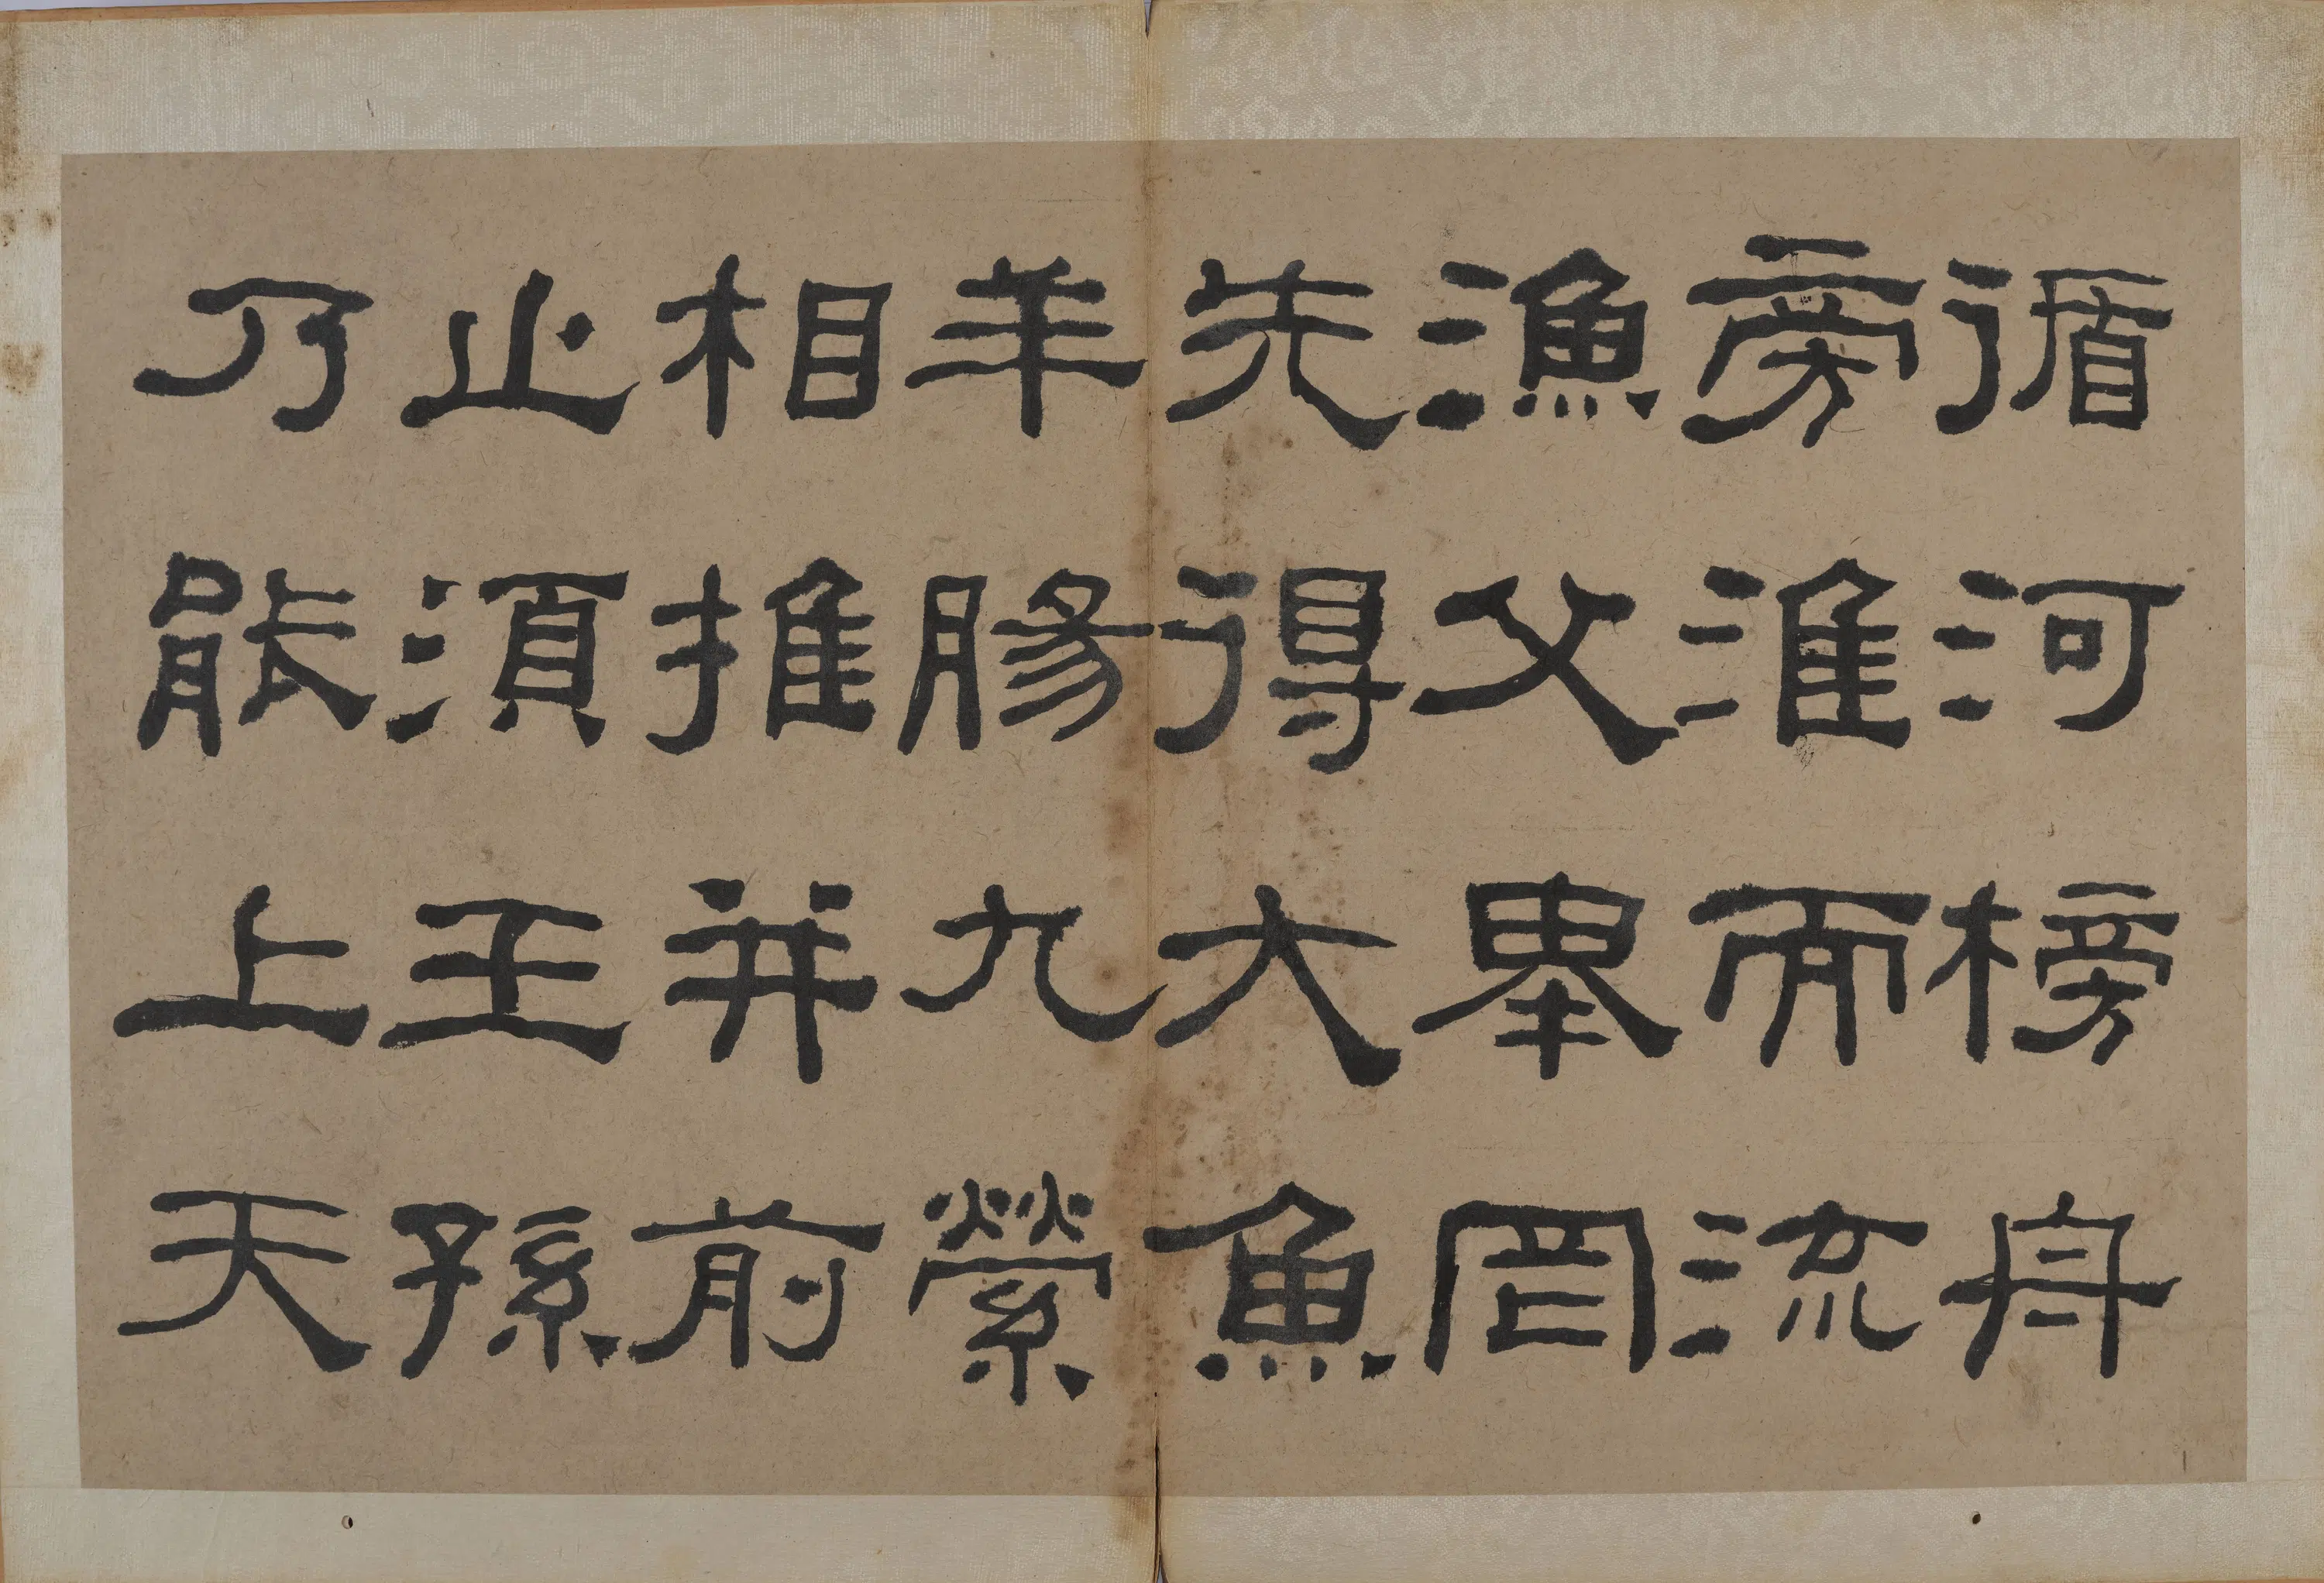 循河榜舟
旁淮而流
漁父舉罔
先得大魚
羊腸九縈
相推并前
止須王孫
乃能上天